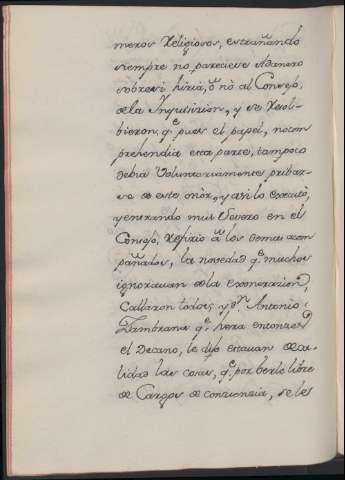 meros Religiosos, estrañando
siempre no pareciese Adanero
sobre si hiria, ô nò al Consejo,
de la Inquisicion, y se resol-
bieron, q.e pues el papel, no com
prehendia esta parte, tampoco
debia Voluntariamente pribar-
se de este onòr, y asi lo executò,
y entrando mui Severo en el
Consejo, Refirio â los demas acom
pañados, la novedad q.e muchos
ignorauan de la exoneracion,
Callaron todos, y D.n Antonio
Zambrana q.e hera entonzes
el Decano, le dijo estauan de ca-
lidad las cosas, q.e por berle libre
de Cargos de conziencia, se les